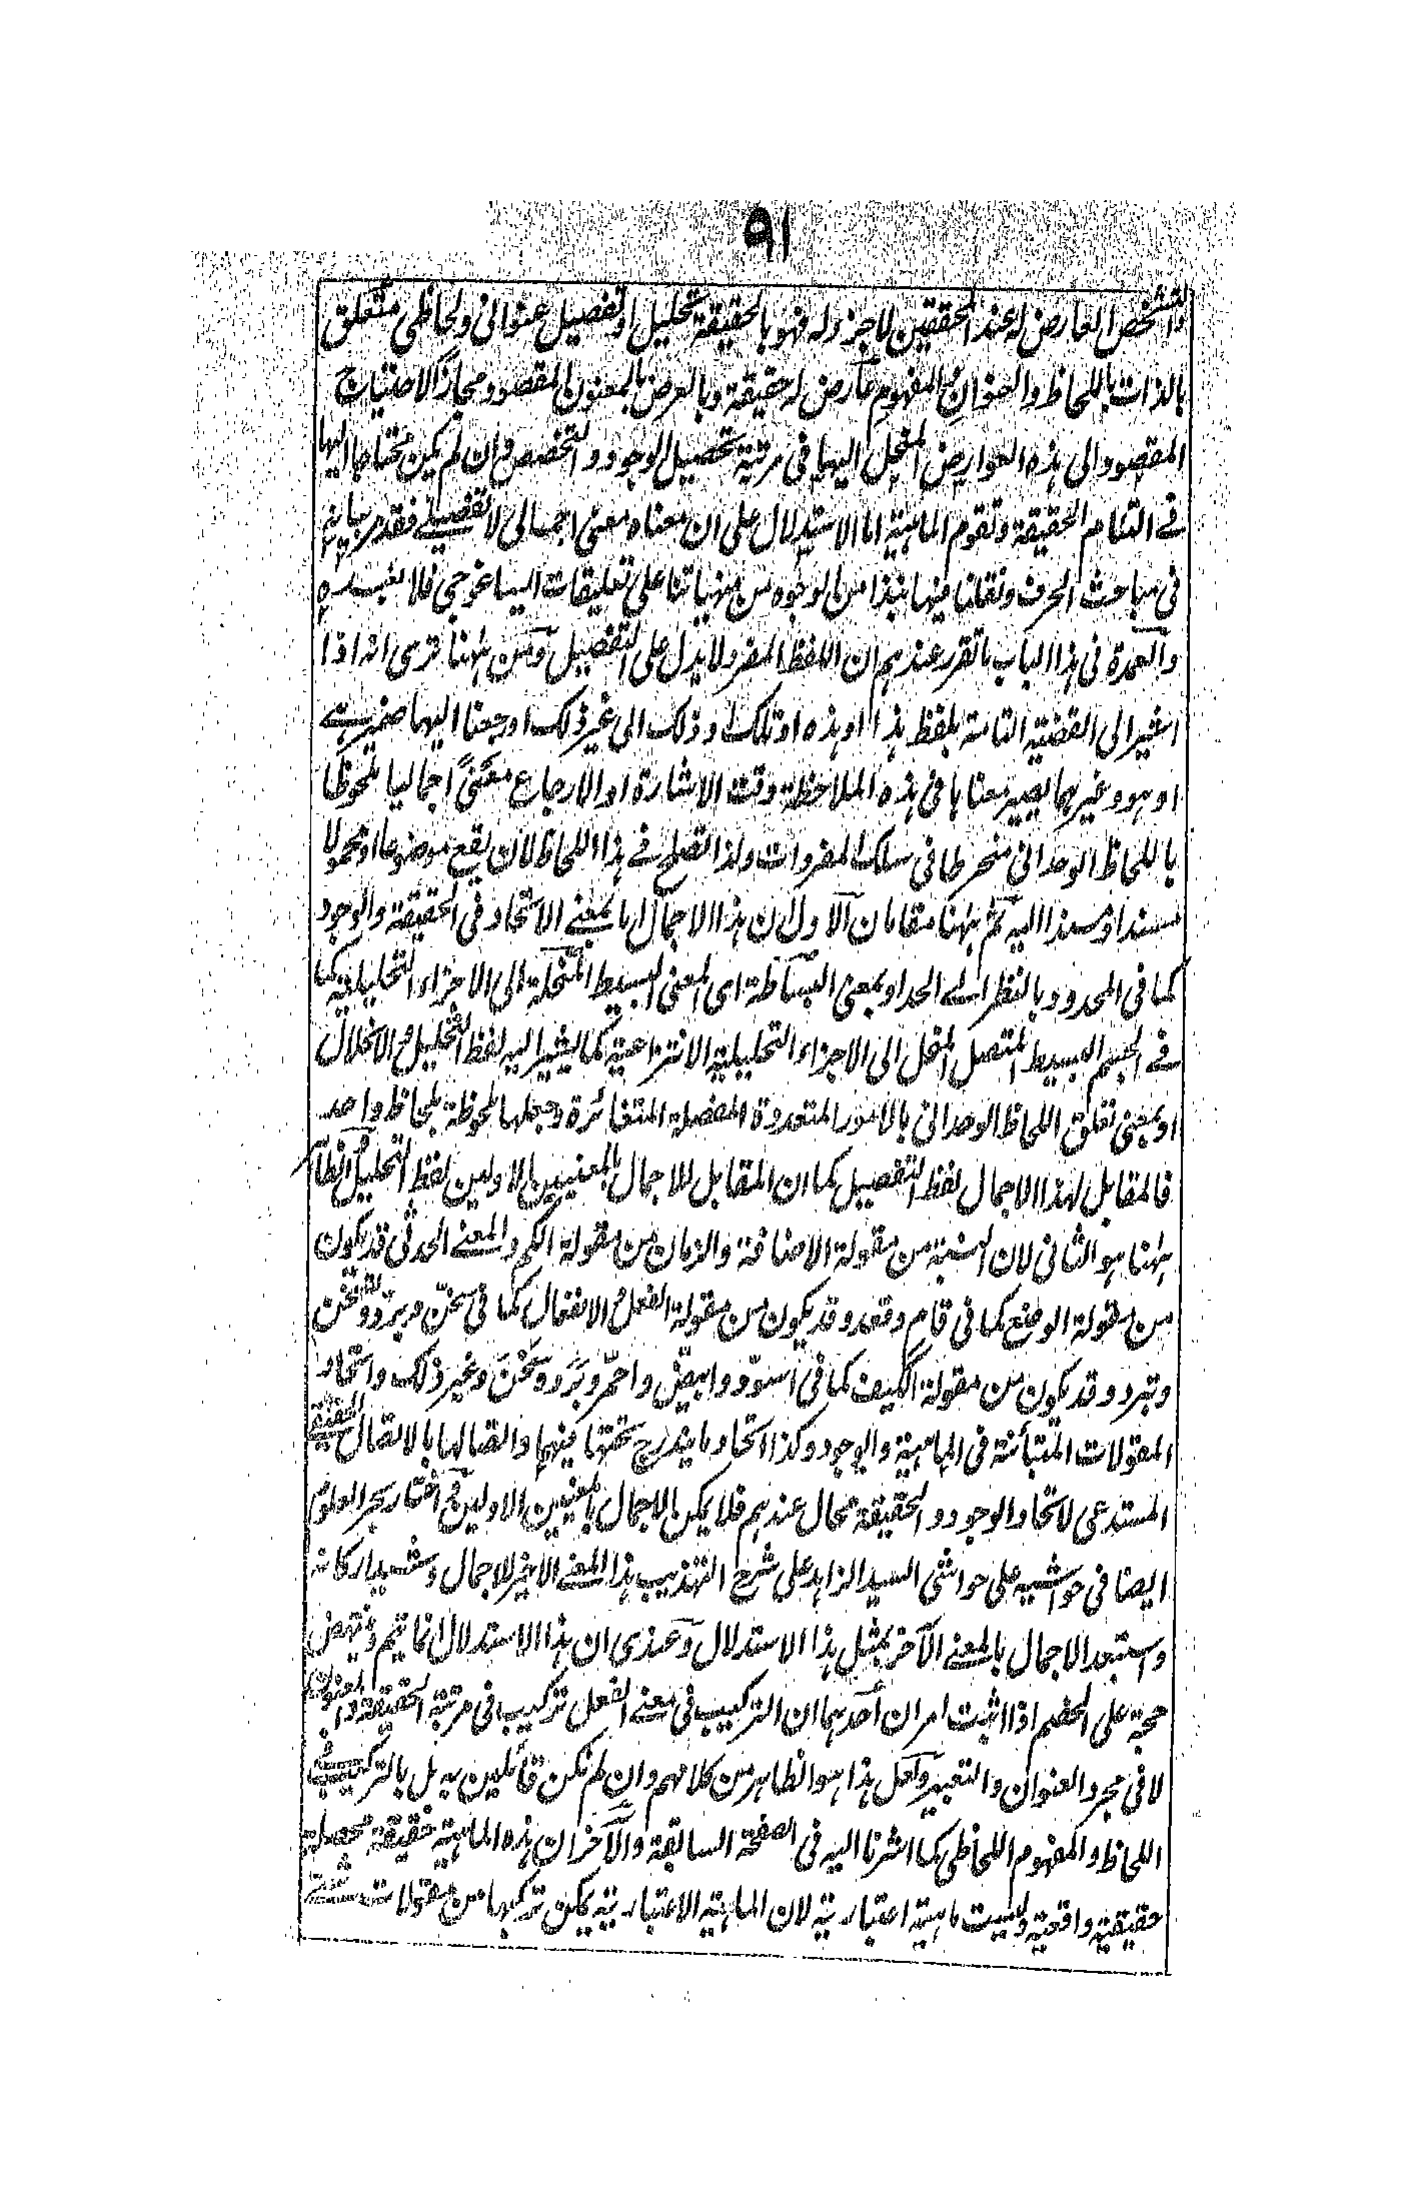 ٩١
والتشخص العارض له عند المحققين لا جزء له فهو بالحقيقة تحليل او تفصيل عنوانى ولحاظى متعلق
بالذات باللحاظ والعنوان والمفهوم عارض له حقيقة وبالعرض بالمعنون المقصود ومجازا لاحتياج
المقصود الى هذه العوارض المنحل اليها فى مرتبة تحصيل الوجود والتخصص وان لم يكن محتاجا اليها
فى التئام الحقيقة وتقوم الماهية اما الاستدلال على ان معناه معنى اجمالى لا تفصيلى فقد مر بيانه
فى مباحث الحرف ونقلنا فيها نبذا من الوجوه من منهياتنا على تعليقات ايساغوجى فلا نعيده
والعمدة فى هذا الباب ما تقرر عندهم ان اللفظ المفرد لا يدل على التفصيل ومن ههنا ترى انه اذا
اشير الى القضية التامة بلفظ هذا او هذه او تلك او ذلك الى غير ذلك او رجعنا اليها ضمير هى
او هو وغيرهما يصير معناها فى هذه الملاحظة وقت الاشارة او الارجاع معنىً اجماليا ملحوظا
باللحاظ الوحدانى منخرطا فى سلك المفردات ولذا تصلح فى هذا اللحاظ لان يقع موضوعا او محمولا
مسندا او مسندا اليه ثم ههنا مقامان الاول ان هذا الاجمال اما بمعنى الاتحاد فى الحقيقة والوجود
كما فى المحدود بالنظر الى الحد او بمعنى البساطة اى المعنى البسيط المنحلة الى الاجزاء التحليلية كما
فى الجسم البسيط المتصل المنحل الى الاجزاء التحليلية الانتزاعية كما يشير اليه لفظ التحليل والانحلال
او بمعنى تعلق اللحاظ الوحدانى بالامور المتعددة المفصلة المتغائرة وجعلها ملحوظة بلحاظ واحد
فالمقابل لهذا الاجمال لفظ التفصيل كما ان المقابل للاجمال بالمعنيين الاولين لفظ التحليل والظاهر
ههنا هو الثانى لان النسبة من مقولة الاضافة والزمان من مقولة الكم والمعنى الحدثى قد يكون
من مقولة الوضع كما فى قام وقعد وقد يكون من مقولة الفعل والانفعال كما فى سخّن وبرّد وتسخن
وتبرد وقد يكون من مقولة الكيف كما فى اسودّ وابيضّ واحمرّ وبَرَد وسَخُنَ وغير ذلك واتحاد
المقولات المتبائنة فى الماهية والوجود وكذا اتحاد ما يندرج تحتها فيهما واتصالها بالاتصال الحقيقى
المستدعى لاتحاد الوجود والحقيقة محال عندهم فلا يمكن الاجمال بالمعنيين الاولين اختار بحر العلوم
ايضا فى حواشيه على حواشى السيد الزاهد على شرح التهذيب هذا المعنى الاخير للاجمال وشيد اركانه
واستبعد الاجمال بالمعنى الآخر بمثل هذا الاستدلال وعندى ان هذا الاستدلال انما يتم وينهض
حجة على الخصم اذا اثبت امران احدهما ان التركيب فى معنى الفعل تركيب فى مرتبة الحقيقة والمعنون
لا فى مجرد العنوان والتعبير ولعل هذا هو الظاهر من كلامهم وان لم نكن قائلين به بل بالتركيب فى
اللحاظ والمفهوم اللحاظى كما اشرنا اليه فى الصفحة السابقة والآخر ان هذه الماهية حقيقة محصلة
حقيقية واقعية وليست ماهية اعتبارية لان الماهية الاعتبارية يمكن تركبها من مقولات شتى